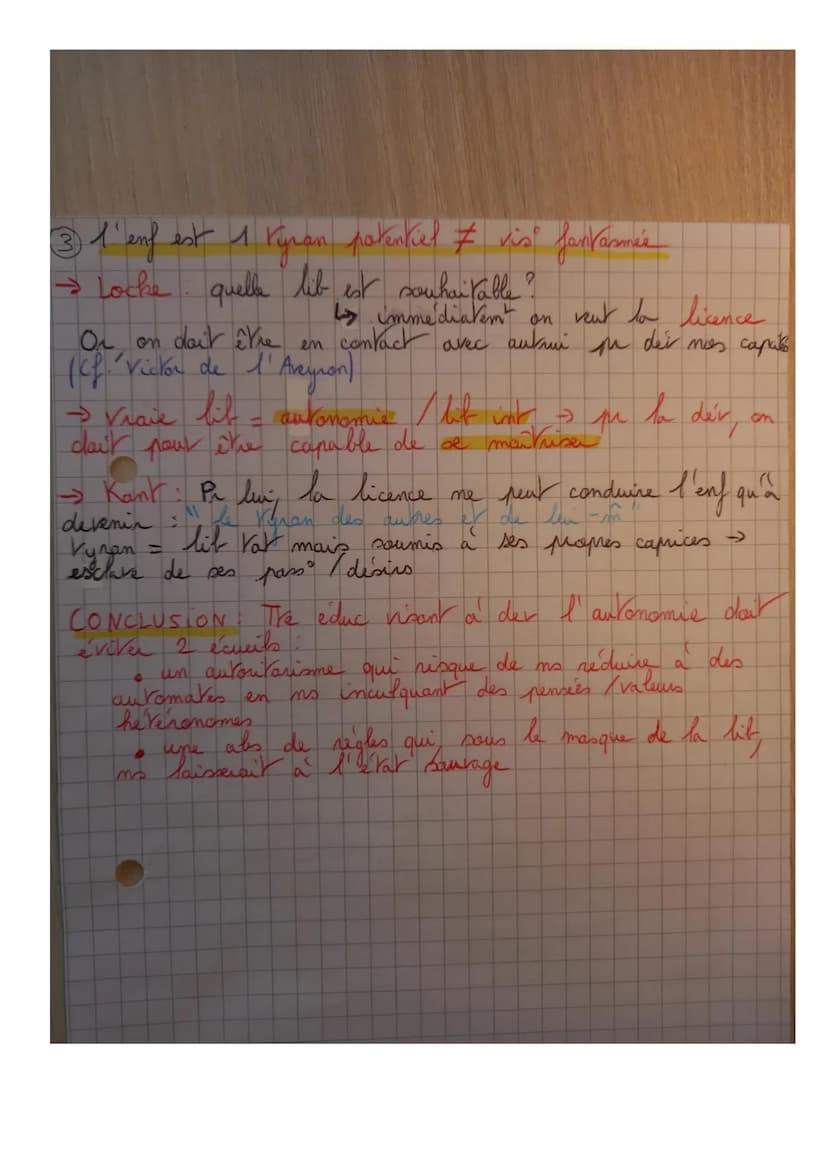 ③ l'enf est 1 tyran potentiel ≠ vis° fantasmée
→ Locke : quelle lib est souhaitable ?
↳ immédiatem^t on veut la licence
Or, on doit être en contact avec autrui pr dév nos capaités
(Cf. Victor de l'Aveyron)
→ Vraie lib = autonomie / lib int → pr la dév, on
doit pour être capable de se maîtriser
→ Kant : Pr lui, la licence ne peut conduire l'enf qu'à
devenir : "le tyran des autres et de lui-m̂"
tyran = lib tot mais soumis à ses propres caprices →
esclave de ses pass° / désirs
CONCLUSION : Tte éduc visant à dev l'autonomie doit
éviter 2 écueils :
• un autoritarisme qui risque de ns réduire à des
automates en ns inculquant des pensées / valeurs
hétéronomes
• une abs de règles qui, sous le masque de la lib,
ns laisserait à l'état sauvage